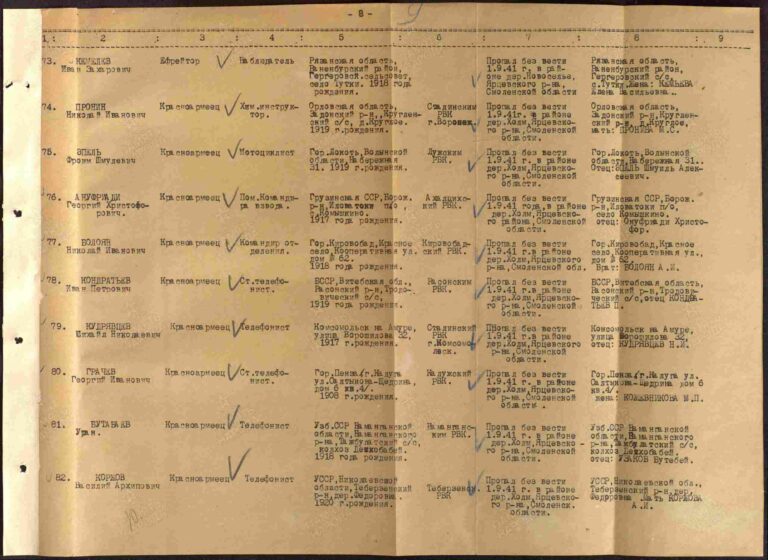 - 8 -
1. : 2 : 3 : 4 : 5 : 6 : 7 : 8 : 9
73. КЕМЕЛЕВ
Иван Захарович
Ефрейтор
Наблюдатель
Рязанская область,
Ваненбургский район,
Гергеровск.сельсовет,
село Тутки. 1918 года
рождения.
Пропал без вести
1.9.41 г. в рай-
оне дер.Новоселье,
Ярцевского р-на,
Смоленской области
Рязанская область,
Ваненбургский р-н,
Гергеровский с/с,
с.Тутку.Жена:
Елена Васильевна.
74. ПРОНИН
Николай Иванович
Красноармеец
Хим.инструк-
тор.
Орловская область,
Задонский р-н,Круглен-
ский с/с, д.Круглое.
1919 г.рождения.
Сталинским
РВК
г.Воронеж.
Пропал без вести
1.9.41г. в районе
дер.Холм,Ярцевско-
го р-на,Смоленской
области.
Орловская область,
Задонский р-н,Круглен-
ский с/с д.Круглое,
мать: ПРОНИНА М.С.
75. ЭПЕЛЬ
Фроим Шмулевич
Красноармеец
Мотоциклист
Гор.Локоть,Волынской
области,Набережная
31. 1919 г.рождения.
Лужским
РВК.
Пропал без вести
1.9.41 г. в районе
дер.Холм,Ярцевско-
го р-на,Смоленской
области.
Гор.Локоть,Волынской
области,Набережная 31..
Отец:ЭПЕЛЬ Шмуиль Алек-
сеевич.
76. АНУФРИАДИ
Георгий Христофо-
рович.
Красноармеец
Пом.Команди-
ра взвода.
Грузинская ССР,Борж.
р-н,Цловатоки п/о
с.Комышкино.
1917 года рождения.
Ахалцихс-
кий РВК.
Пропал без вести
1.9.41 года,в районе
дер.Холм,Ярцевского
района,Смоленской
области.
Грузинская ССР,Борж.
р-н,Цловатоки п/о,
село Комышкино.
отец: Онуфриади Христо-
фор.
77. БОДОЯН
Николай Иванович
Красноармеец
Командир от-
деления.
Гор.Кировобад,Красное
село,Кооперативная ул.
дом № 62.
1918 года рождения.
Кировобад-
ский РВК.
Пропал без вести
1.9.41 г. в районе
дер.Холм,Ярцевского
р-на,Смоленской обл.
Гор.Кировобад,Красное
село,Кооперативная ул.,
дом № 62.
Брат: БОДОЯН А.И.
78. КОНДРАТЬЕВ
Иван Петрович
Красноармеец
Ст.телефо-
нист.
БССР,Витебская обл.,
Расонский р-н,Тродо-
вический с/с,
1919 года рождения
Расонским
РВК.
Пропал без вести
1.9.41 г. в районе
дер.Холм,Ярцевско-
го р-на,Смоленской
области.
БССР,Витебская область,
Расонский р-н,Тродови-
ческий с/с,отец КОНДРА-
ТЬЕВ П.
79. КУДРЯВЦЕВ
Михаил Николаевич
Красноармеец
Телефонист
Комсомольск на Амуре,
улица Ворошилова 32,
1917 г.рождения.
Сталинский
РВК
г.Комсомо-
льск.
Пропал без вести
1.9.41 г. в районе
дер.Холм,Ярцевского
р-на,Смоленской
области.
Комсомольск на Амуре,
улица Ворошилова 32,
отец: КУДРЯВЦЕВ Н.И.
80. ГРАЧЕВ
Георгий Иванович
Красноармеец
Ст.телефо-
нист.
Гор.Пенза/г.Калуга
ул.Салтыкова-Щедрина,
дом 6 кв.4/.
1908 г.рождения.
Калужский
РВК.
Пропал без вести
1.9.41 г. в районе
дер.Холм,Ярцевско-
го р-на,Смоленской
области.
Гор.Пенза/г.Калуга ул.
Салтыкова-Щедрина дом 6
кв.4/.
жена: КОЖЕВНИКОВА М.П.
81. БУТАБАЕВ
Уран.
Красноармеец
Телефонист
Узб.ССР Наманганской
области,Наманганского
р-на,Тамбулатский с/с,
колхоз Деххобабей.
1918 года рождения.
Наманганс-
ким РВК.
Пропал без вести
1.9.41 г. в районе
дер.Холм,Ярцевско -
го р-на,Смоленской
области.
Узб.ССР Наманганской
области,Наманганского
р-на,Тамбулатский с/с,
колхоз Деххобабей.
отец: УЗАКОВ Бутебей.
82. КОРКОВ
Василий Архипович
Красноармеец
Телефонист
УССР,Николаевской
области,Теберзенский
р-н,дер.Федоровка.
1920 г.рождения.
Теберзенск.
РВК
Пропал без вести
1.9.41 г. в районе
дер.Холм,Ярцевско-
го р-на,Смоленск.
области.
УССР,Николаевской обл.,
Теберзенский р-н,дер.
Федоровка Мать КОРКОВА
А.И.